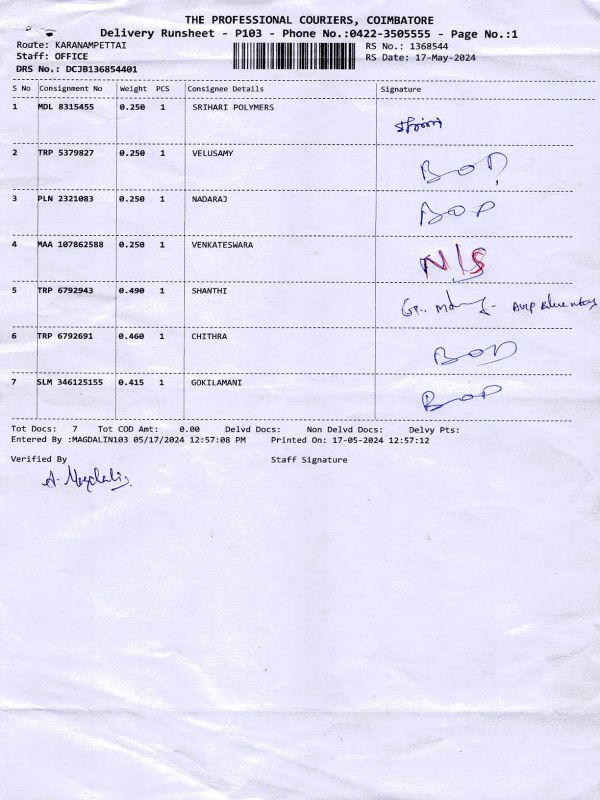 THE PROFESSIONAL COURIERS, COIMBATORE
Delivery Runsheet - P103 - Phone No.:0422-3505555 - Page No.:1
Route: KARANAMPETTAI RS No.: 1368544
Staff: OFFICE RS Date: 17-May-2024
DRS No.: DCJB136854401
S No Consignment No Weight PCS Consignee Details Signature
1 MDL 8315455 0.250 1 SRIHARI POLYMERS
2 TRP 5379827 0.250 1 VELUSAMY BOD
3 PLN 2321083 0.250 1 NADARAJ BOD
4 MAA 107862588 0.250 1 VENKATESWARA N/S
5 TRP 6792943 0.490 1 SHANTHI
6 TRP 6792691 0.460 1 CHITHRA BOD
7 SLM 346125155 0.415 1 GOKILAMANI BOD
Tot Docs: 7 Tot COD Amt: 0.00 Delvd Docs: Non Delvd Docs: Delvy Pts:
Entered By :MAGDALIN103 05/17/2024 12:57:08 PM Printed On: 17-05-2024 12:57:12
Verified By Staff Signature
A. Magdalin